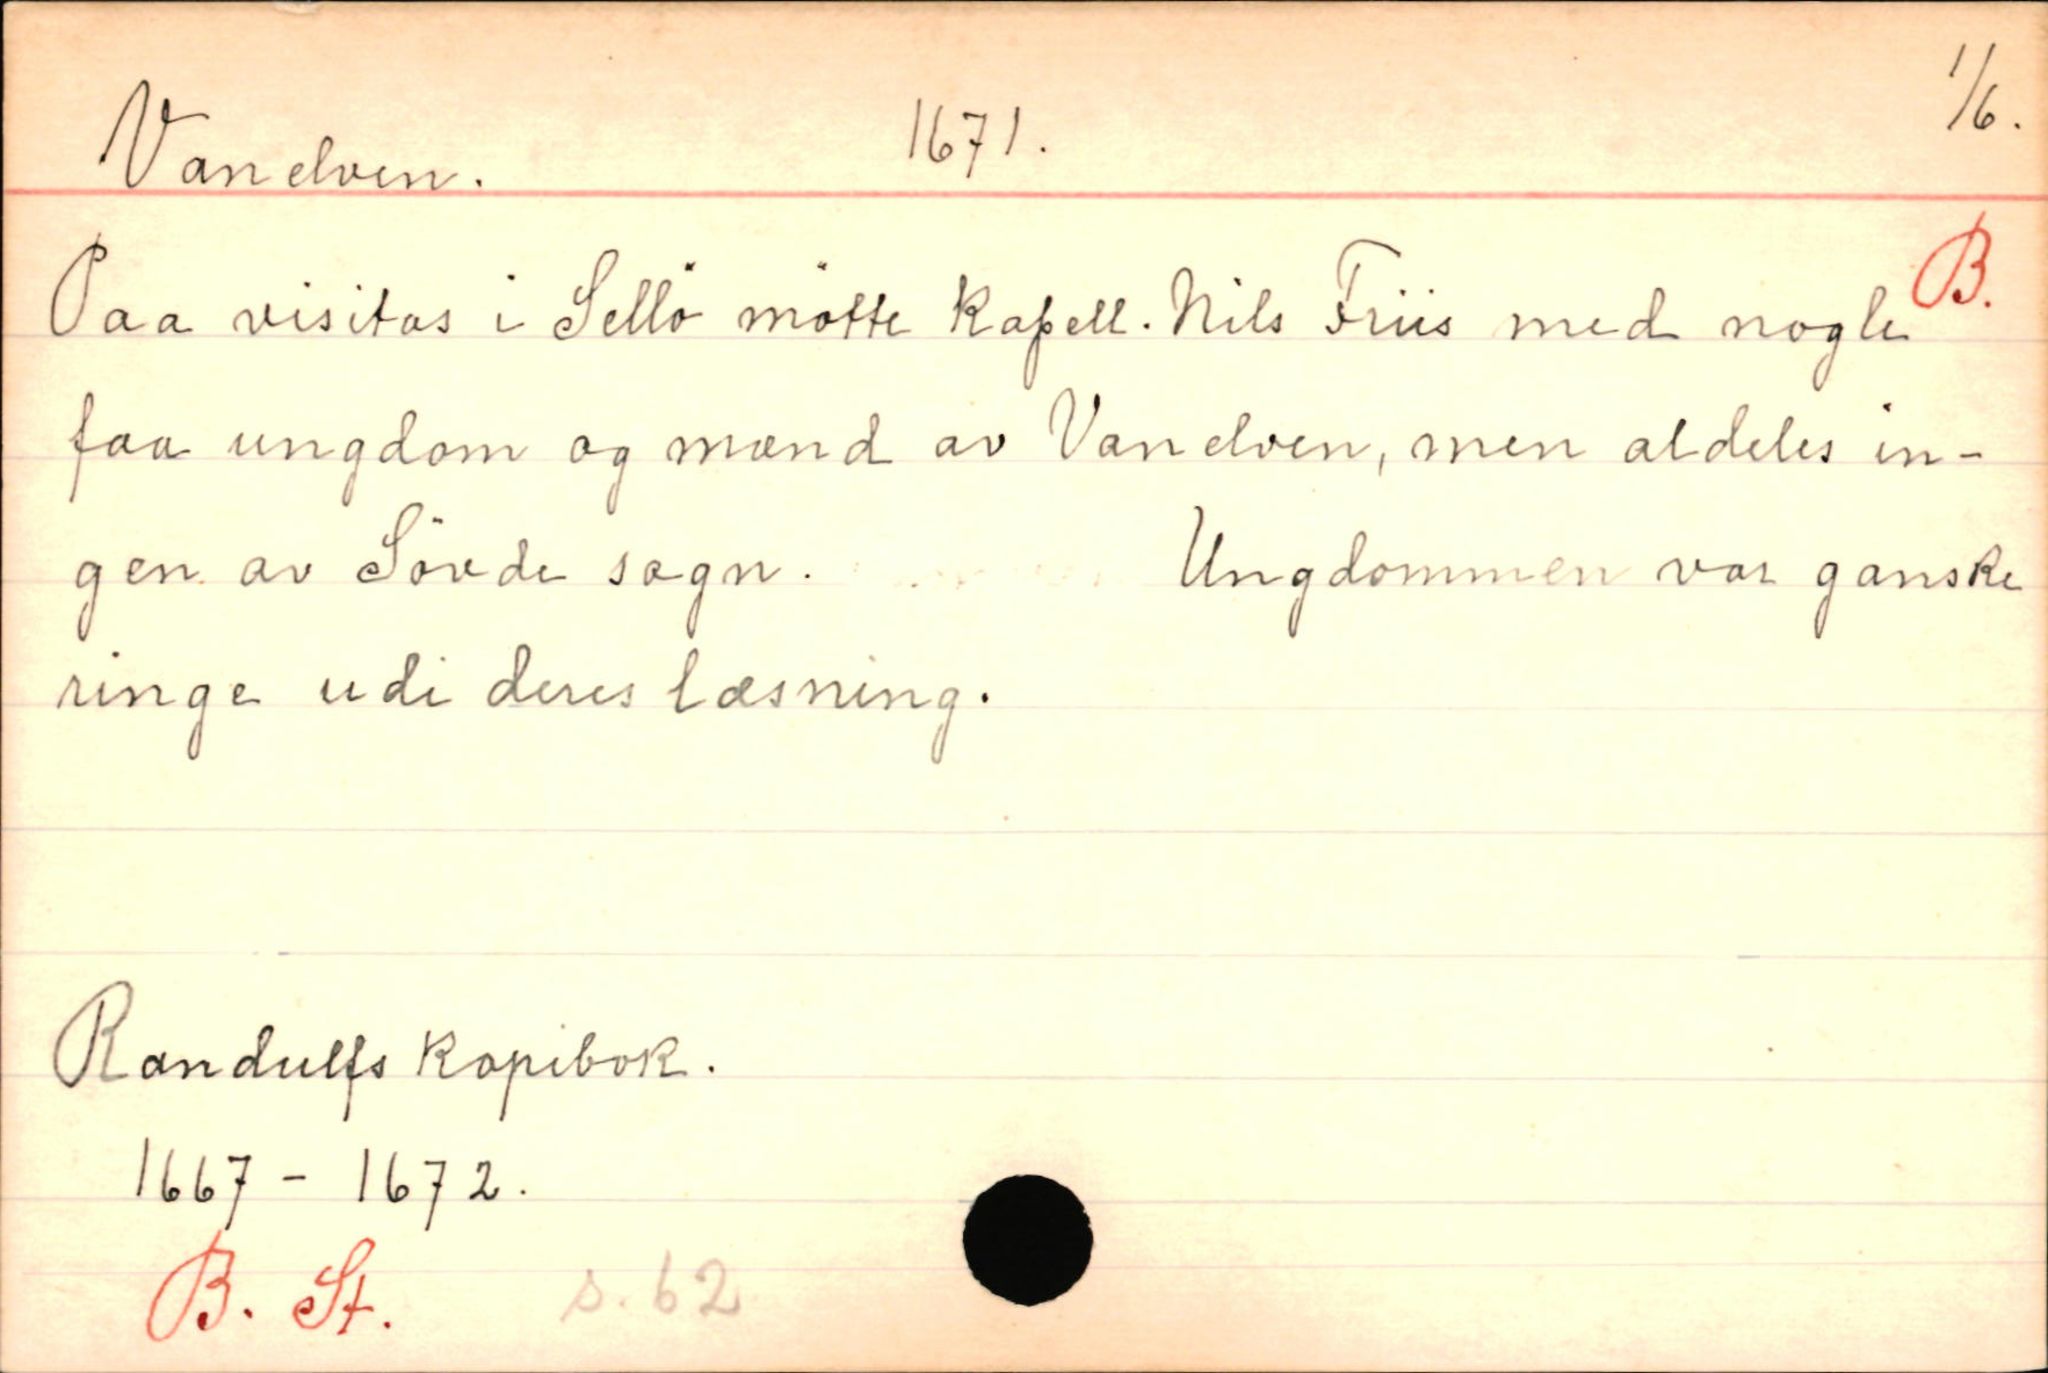 1/6.
Vanelven. 1671.
B.
Paa visitas i Sellö mötte Kapell. Nils Friis med nogle
faa ungdom og mænd av Vanelven, men aldeles in-
gen av Sövde sogn. Ungdommen var ganske
ringe udi deres læsning.
Randulfs Kopibok.
1667 - 1672.
B. St. s. 62